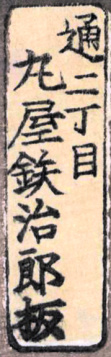 通二丁目
丸屋鉄治郎板